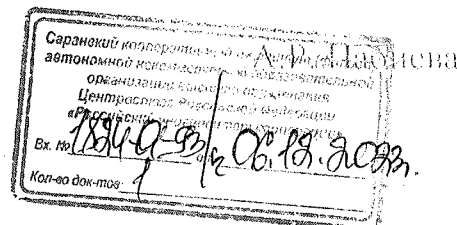 Саранский кооперативный
автономной некоммерческой образовательной
организации высшего образования
Центросоюза Российской Федерации
«Российский университет кооперации»
Вх. № 06.12.2023г.
Кол-во док-тов 1
А.Р.